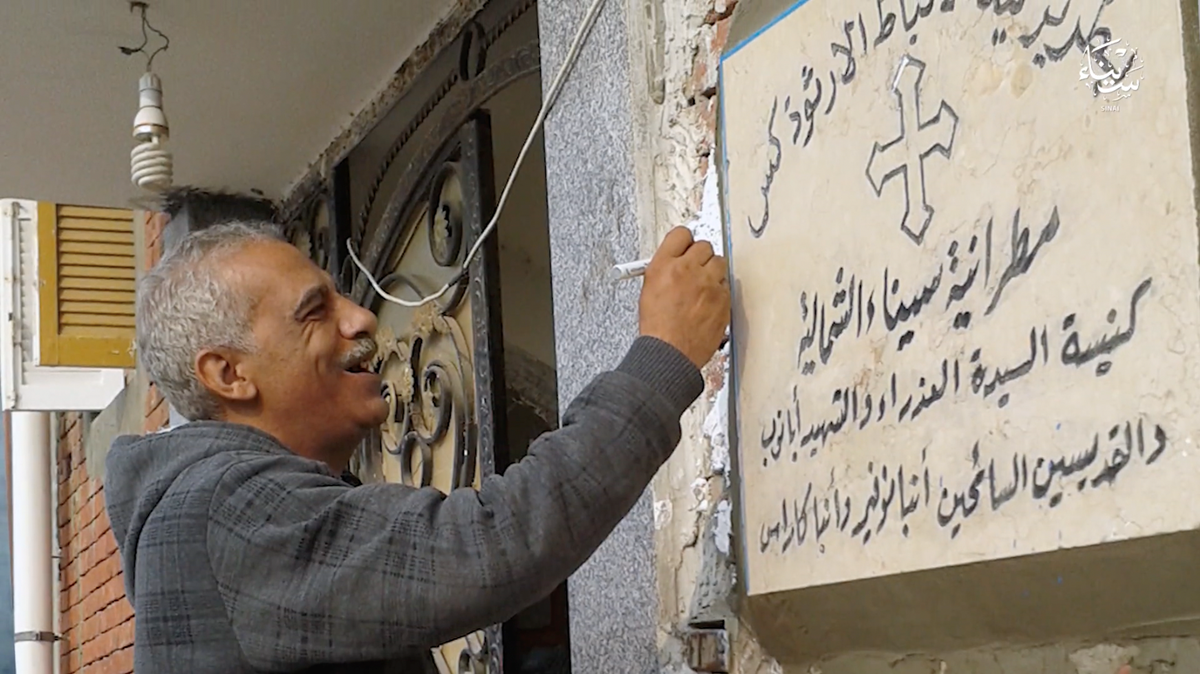 الاقباط الارثوذكس
مطرانية سيناء الشمالية
كنيسة السيدة العذراء والشهيد أبانوب
والقديسين السائحين أنبا نوفير وأنبا كاراس
سيناء
SINAI